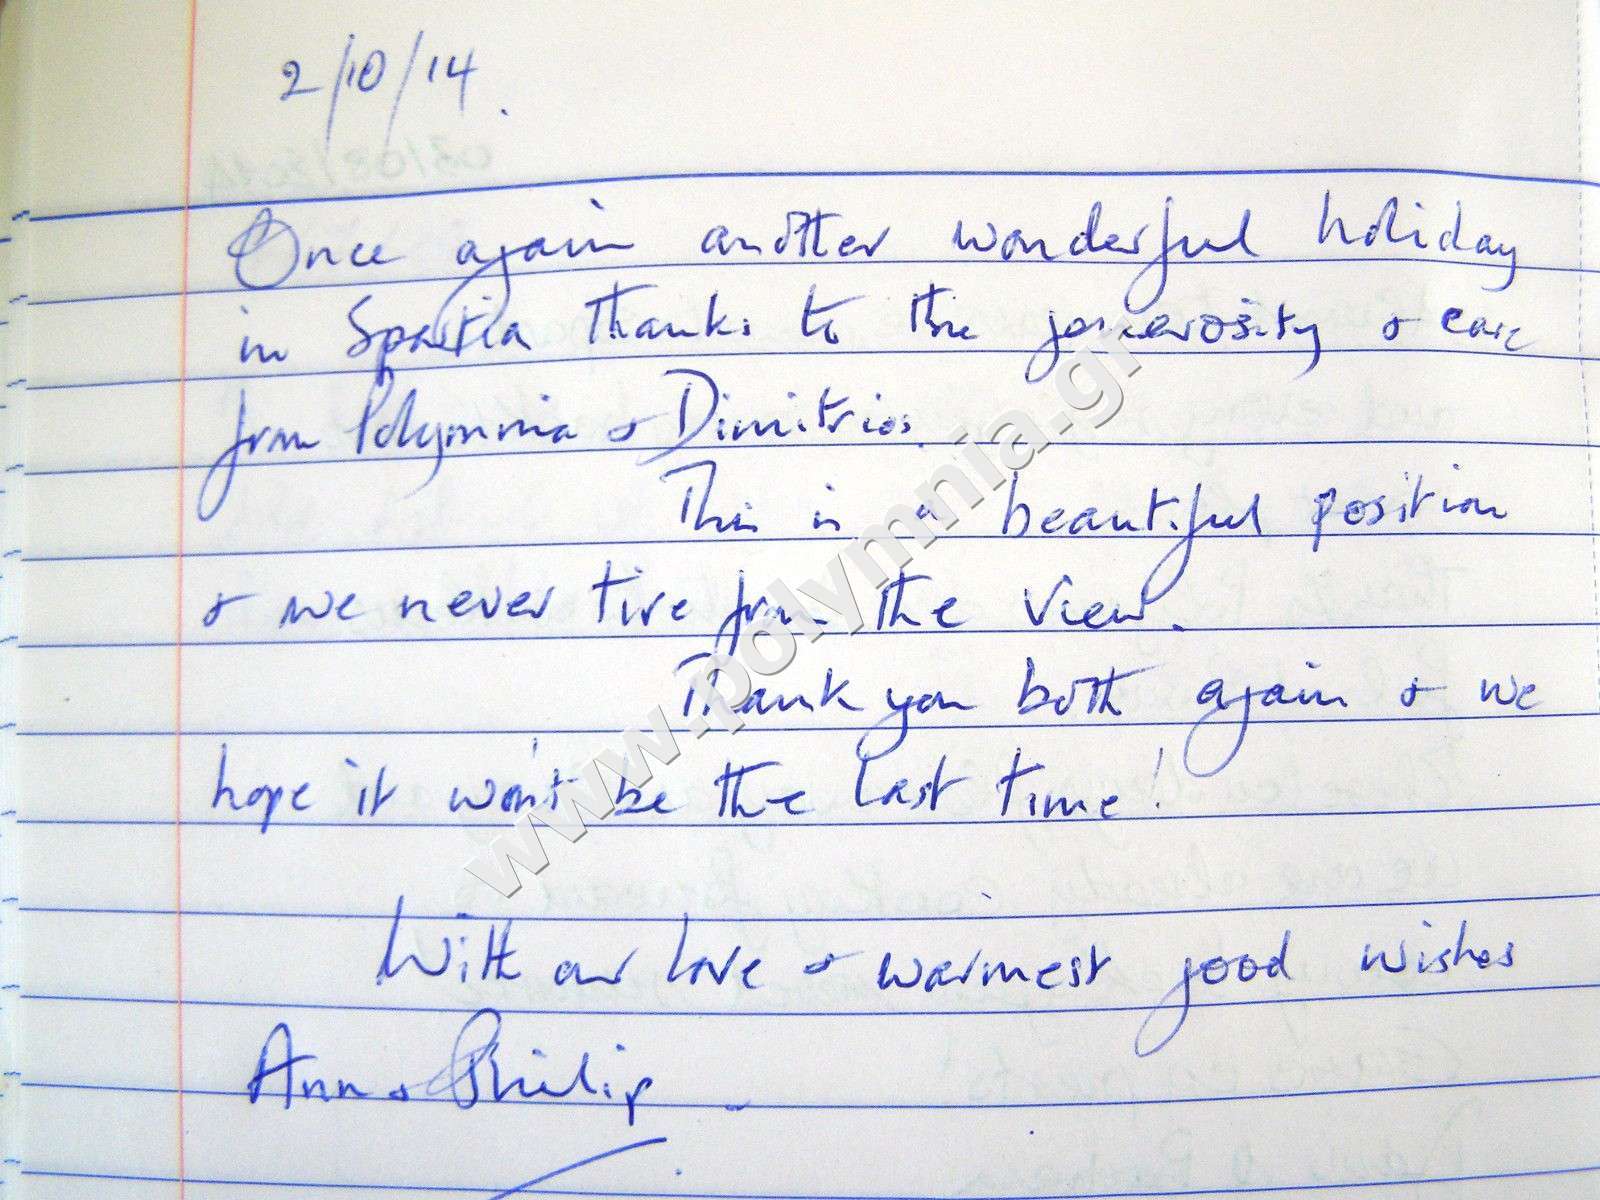 2/10/14.
Once again another wonderful holiday
in Spartia thanks to the generosity & care
from Polymnia & Dimitrios.
This is a beautiful position
& we never tire from the view.
Thank you both again & we
hope it won't be the last time!
With our love & warmest good wishes
Ann & Philip
www.polymnia.gr